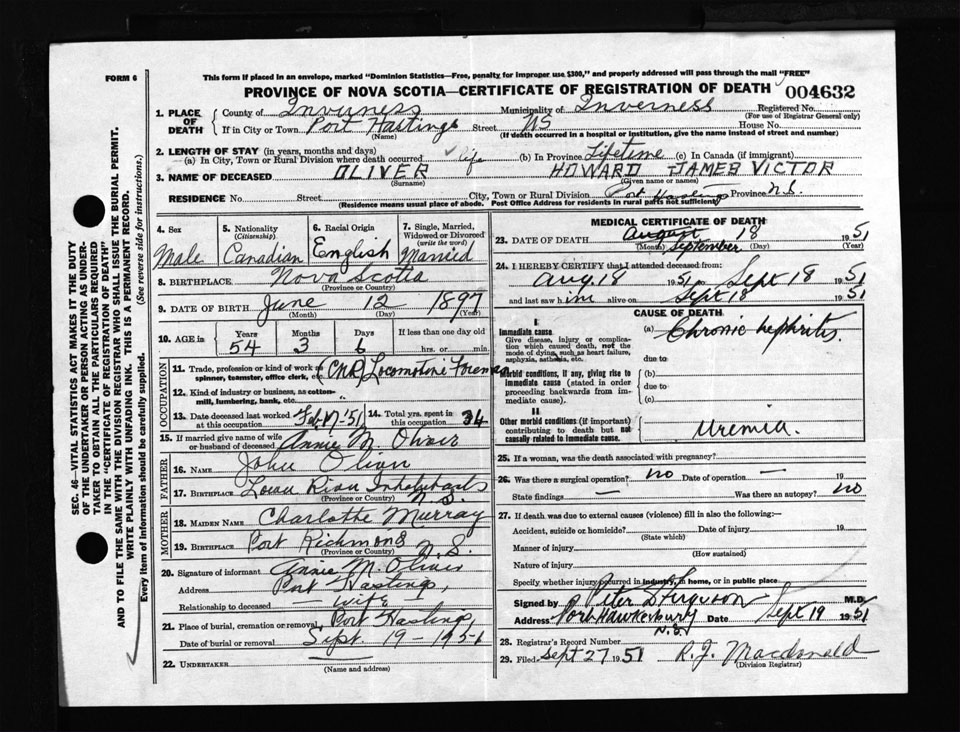 FORM 6
This form if placed in an envelope, marked "Dominion Statistics—Free, penalty for improper use $300," and properly addressed will pass through the mail "FREE"
PROVINCE OF NOVA SCOTIA—CERTIFICATE OF REGISTRATION OF DEATH 004632
1. PLACE OF DEATH
County of Inverness Municipality of Inverness Registered No.
(For use of Registrar General only)
If in City or Town Port Hastings Street NS House No.
(Name) (If death occurred in a hospital or institution, give the name instead of street and number)
2. LENGTH OF STAY (in years, months and days)
(a) In City, Town or Rural Division where death occurred life (b) In Province Lifetime (c) In Canada (if immigrant)
3. NAME OF DECEASED OLIVER HOWARD JAMES VICTOR
(Surname) (Given name or names)
RESIDENCE No. Street City, Town or Rural Division Port Hastings Province N.S.
(Residence means usual place of abode. Post Office Address for residents in rural parts not sufficient)
4. Sex
Male
5. Nationality
(Citizenship)
Canadian
6. Racial Origin
English
7. Single, Married, Widowed or Divorced
(write the word)
Married
8. BIRTHPLACE Nova Scotia
(Province or Country)
9. DATE OF BIRTH June 12 1897
(Month) (Day) (Year)
10. AGE in Years Months Days If less than one day old
54 3 6 hrs. or min.
OCCUPATION
11. Trade, profession or kind of work as spinner, teamster, office clerk, etc. (CNR) Locomotive Foreman
12. Kind of industry or business, as cotton-mill, lumbering, bank, etc.
13. Date deceased last worked at this occupation Feb 17 '51 14. Total yrs. spent in this occupation 34
15. If married give name of wife or husband of deceased Annie M. Oliver
FATHER
16. NAME John Oliver
17. BIRTHPLACE River Inhabitants N.S.
(Province or Country)
MOTHER
18. MAIDEN NAME Charlotte Murray
19. BIRTHPLACE Port Richmond N.S.
(Province or Country)
20. Signature of informant Annie M. Oliver
Address Port Hastings,
Relationship to deceased — wife
21. Place of burial, cremation or removal Port Hastings,
Date of burial or removal Sept. 19 - 1951
22. UNDERTAKER
(Name and address)
MEDICAL CERTIFICATE OF DEATH
23. DATE OF DEATH August 18 1951
(Month) September (Day) (Year)
24. I HEREBY CERTIFY that I attended deceased from:
Aug. 18 1951 to Sept 18 1951
and last saw him alive on Sept 18 1951
CAUSE OF DEATH
I
Immediate cause
Give disease, injury or complication which caused death, not the mode of dying, such as heart failure, asphyxia, asthenia, etc.
(a) Chronic nephritis
due to
Morbid conditions, if any, giving rise to immediate cause (stated in order proceeding backwards from immediate cause)
(b)
due to
(c)
II
Other morbid conditions (if important) contributing to death but not causally related to immediate cause.
Uremia.
25. If a woman, was the death associated with pregnancy?
26. Was there a surgical operation? no Date of operation — 19
State findings — Was there an autopsy? no
27. If death was due to external causes (violence) fill in also the following:—
Accident, suicide or homicide? Date of injury 19
(State which)
Manner of injury
(How sustained)
Nature of injury
Specify whether injury occurred in industry, in home, or in public place
Signed by Peter S Ferguson M.D.
Address Port Hawkesbury N.S. Date Sept 19 1951
28. Registrar's Record Number
29. Filed Sept 27 1951 R. J. Macdonald
(Division Registrar)
SEC. 46—VITAL STATISTICS ACT MAKES IT THE DUTY
OF THE UNDERTAKER OR PERSON ACTING AS UNDER-
TAKER TO OBTAIN ALL THE PARTICULARS REQUIRED
IN THE "CERTIFICATE OF REGISTRATION OF DEATH"
AND TO FILE THE SAME WITH THE DIVISION REGISTRAR WHO SHALL ISSUE THE BURIAL PERMIT.
WRITE PLAINLY WITH UNFADING INK. THIS IS A PERMANENT RECORD.
Every item of information should be carefully supplied. (See reverse side for instructions.)